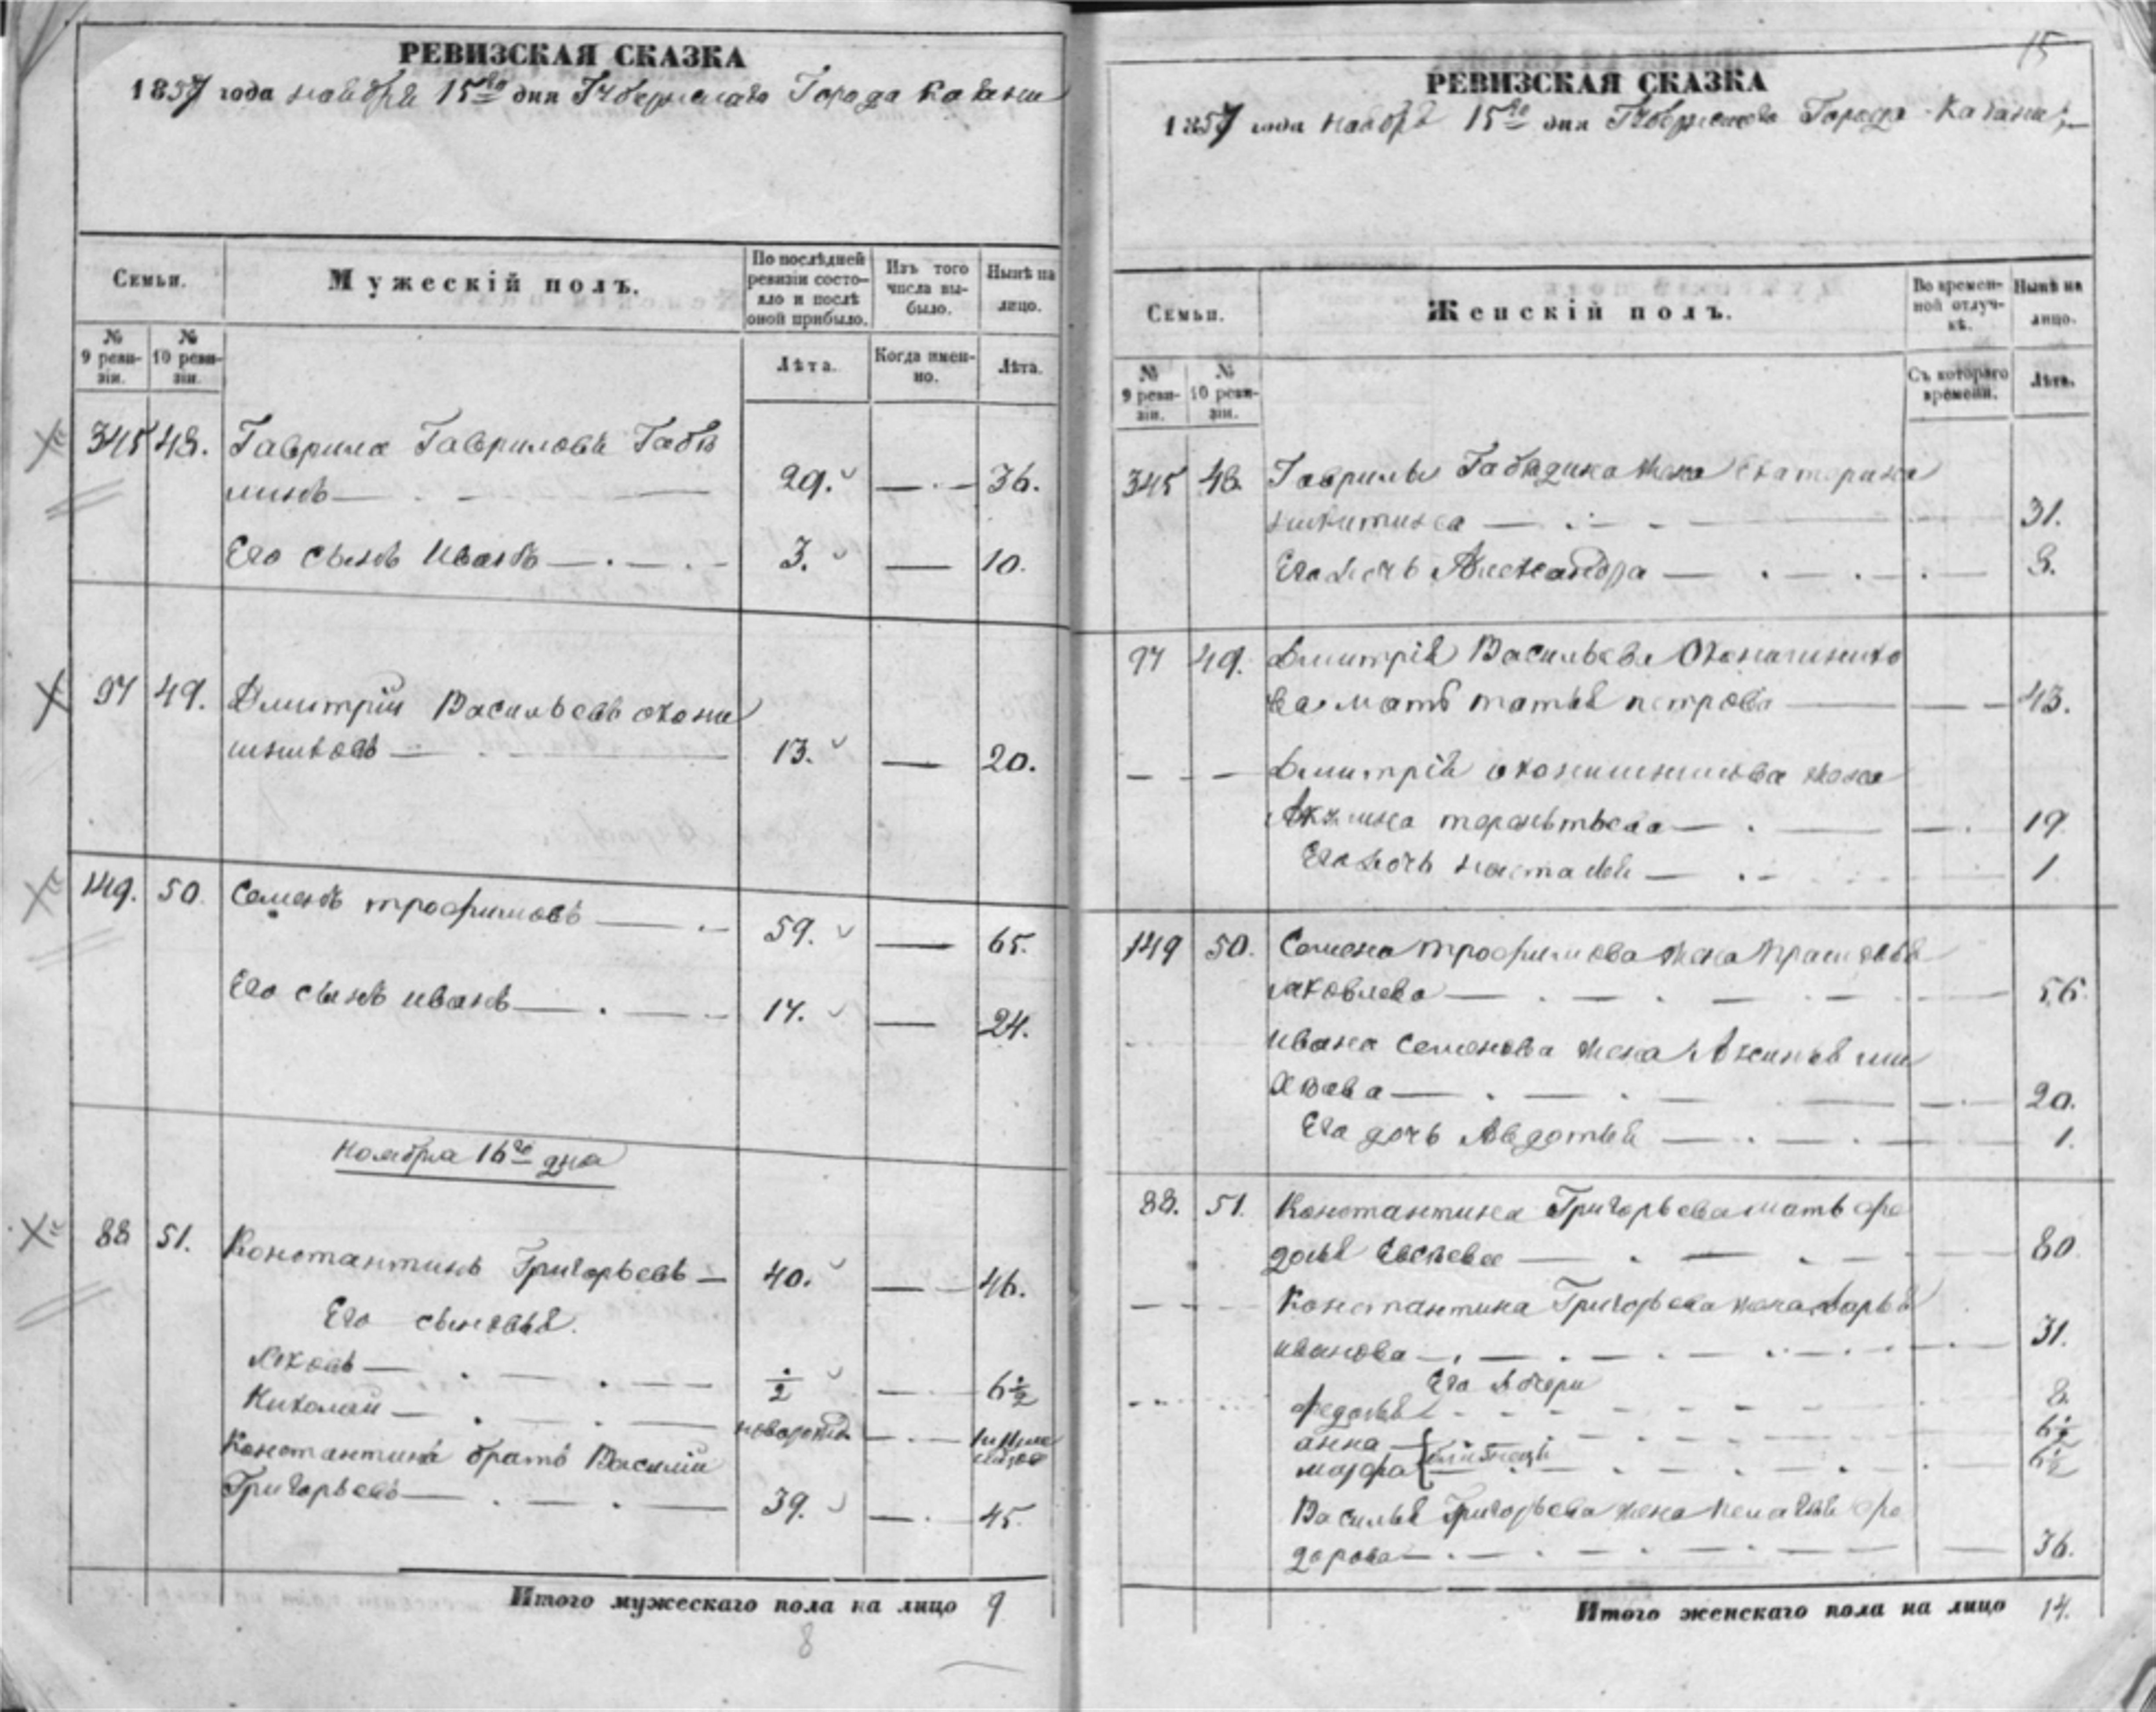 РЕВИЗСКАЯ СКАЗКА
1857 года ноября 15го дня Губернскаго Города Казани
Семьи.
Мужескій полъ.
По послѣдней ревизіи состояло и послѣ оной прибыло.
Изъ того числа выбыло.
Нынѣ на лицо.
№ 9 ревизіи.
№ 10 ревизіи.
Лѣта.
Когда именно.
Лѣта.
345 48. Гаврила Гавриловъ
29. — 36.
Его сынъ Иванъ — 3. — 10.
97 49. Дмитрій Васильевъ околи
шниковъ — 13. — 20.
149. 50. Семенъ трофимовъ — 59. — 65.
Его сынъ иванъ — 17. — 24.
Ноября 16го дня
88 51. Константинъ Григорьевъ — 40. — 46.
Его сыновья.
Яковъ — ½ — 6½
Николай — новорожд. —
Константина братъ Василій
Григорьевъ — 39. — 45.
Итого мужескаго пола на лицо 9
8
15
РЕВИЗСКАЯ СКАЗКА
1857 года ноября 15го дня Губернскаго Города Казани
Семьи.
Женскій полъ.
Во временной отлучкѣ.
Нынѣ на лицо.
№ 9 ревизіи.
№ 10 ревизіи.
Съ котораго времени.
Лѣта.
345 48. Гаврилы жена Екатерина
никитина — 31.
Его дочь Александра — 8.
97 49. Дмитрія Васильева
ва мать татья петрова — 43.
Дмитрія жена
Акулина терентьева — 19
Его дочь настасья — 1.
149 50. Семена трофимова жена Прасковья
яковлева — 56.
ивана семенова жена Аксинья
— 20.
Его дочь Авдотья — 1.
88. 51. Константина Григорьева мать фе
досья Евсѣева — 80
Константина Григорьева жена Дарья
иванова — 31.
Его дочери
федосья — 8.
анна — 6½
марфа близнецы — 6½
Василья Григорьева жена Пелагея фе
дорова — 36.
Итого женскаго пола на лицо 14.